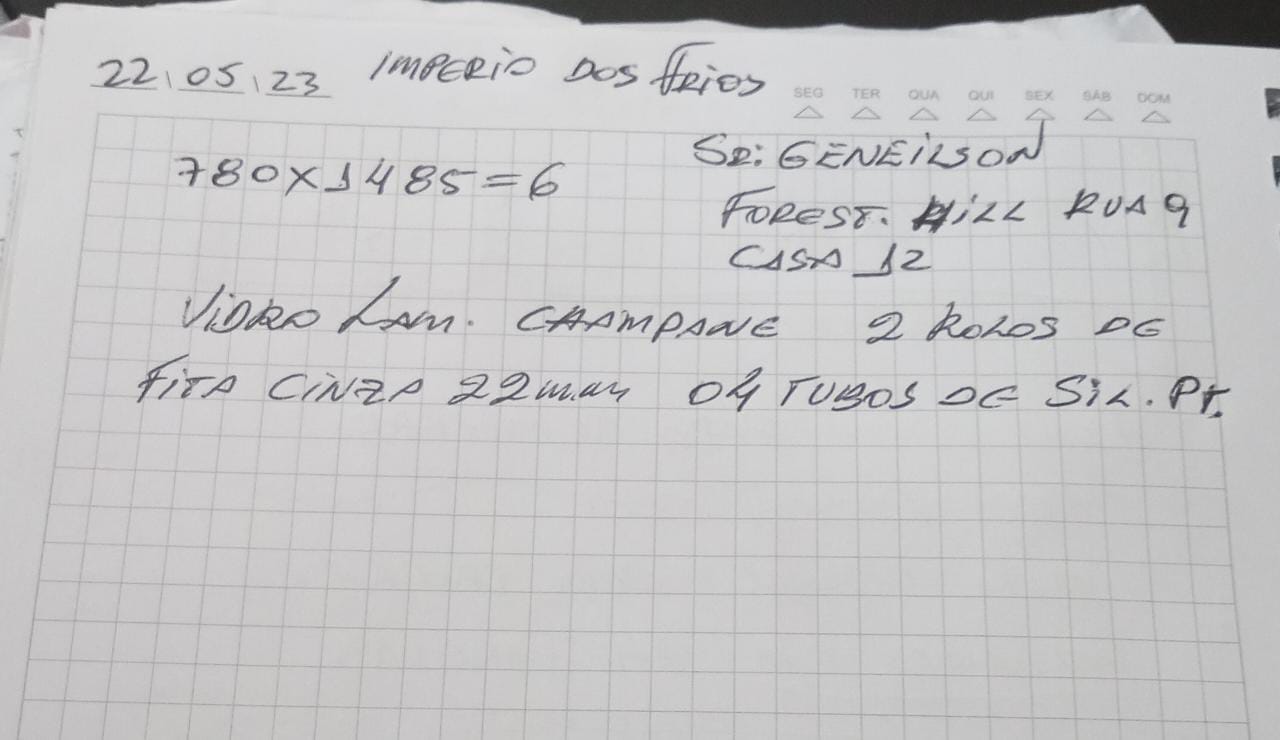 22/05/23 IMPERIO DOS FRIOS
SEG TER QUA QUI SEX SÁB DOM
780X1485=6
SR: GENEILSON
FOREST. HILL RUA 9
CASA 12
VIDRO LAM. CHAMPANE 2 ROLOS DE
FITA CINZA 22mm 04 TUBOS DE SIL. PT.